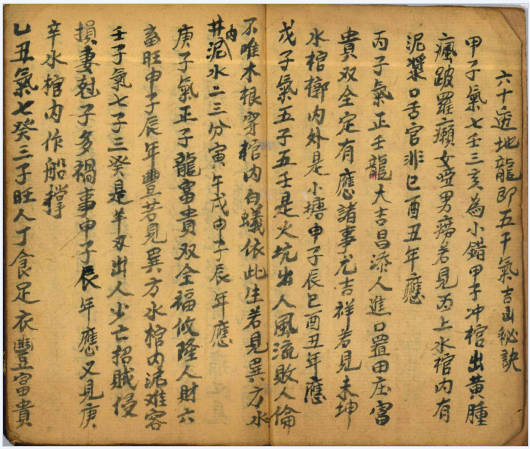 六十透地龍即五子氣吉凶秘訣
甲子氣七壬三亥為小錯甲子冲棺出黃腫
瘋跛羅癩女啞男癆若見丙上水棺內有
泥漿口舌官非巳酉丑年應
丙子氣正壬龍大吉昌添人進口置田庄富
貴双全定有應諸事尤吉祥若見未坤
水棺槨內外是小塘申子辰巳酉丑年應
戊子氣五子五壬是火坑出人風流敗人倫
不唯木根穿棺內白蟻依此生若見巽方水
井內泥水二三分寅午戌申子辰年應
庚子氣正子龍富貴双全福攸隆人財六
畜旺申子辰年豐若見巽方水棺內泥难容
壬子氣七子三癸是羊刃出人少亡招賊侵
損妻剋子多禍事申子辰年應又見庚
辛水棺內作船撑
乙丑氣七癸三子旺人丁食足衣豐富貴